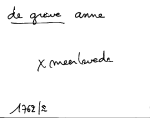 de greve anne
x meerlevede
1762/2